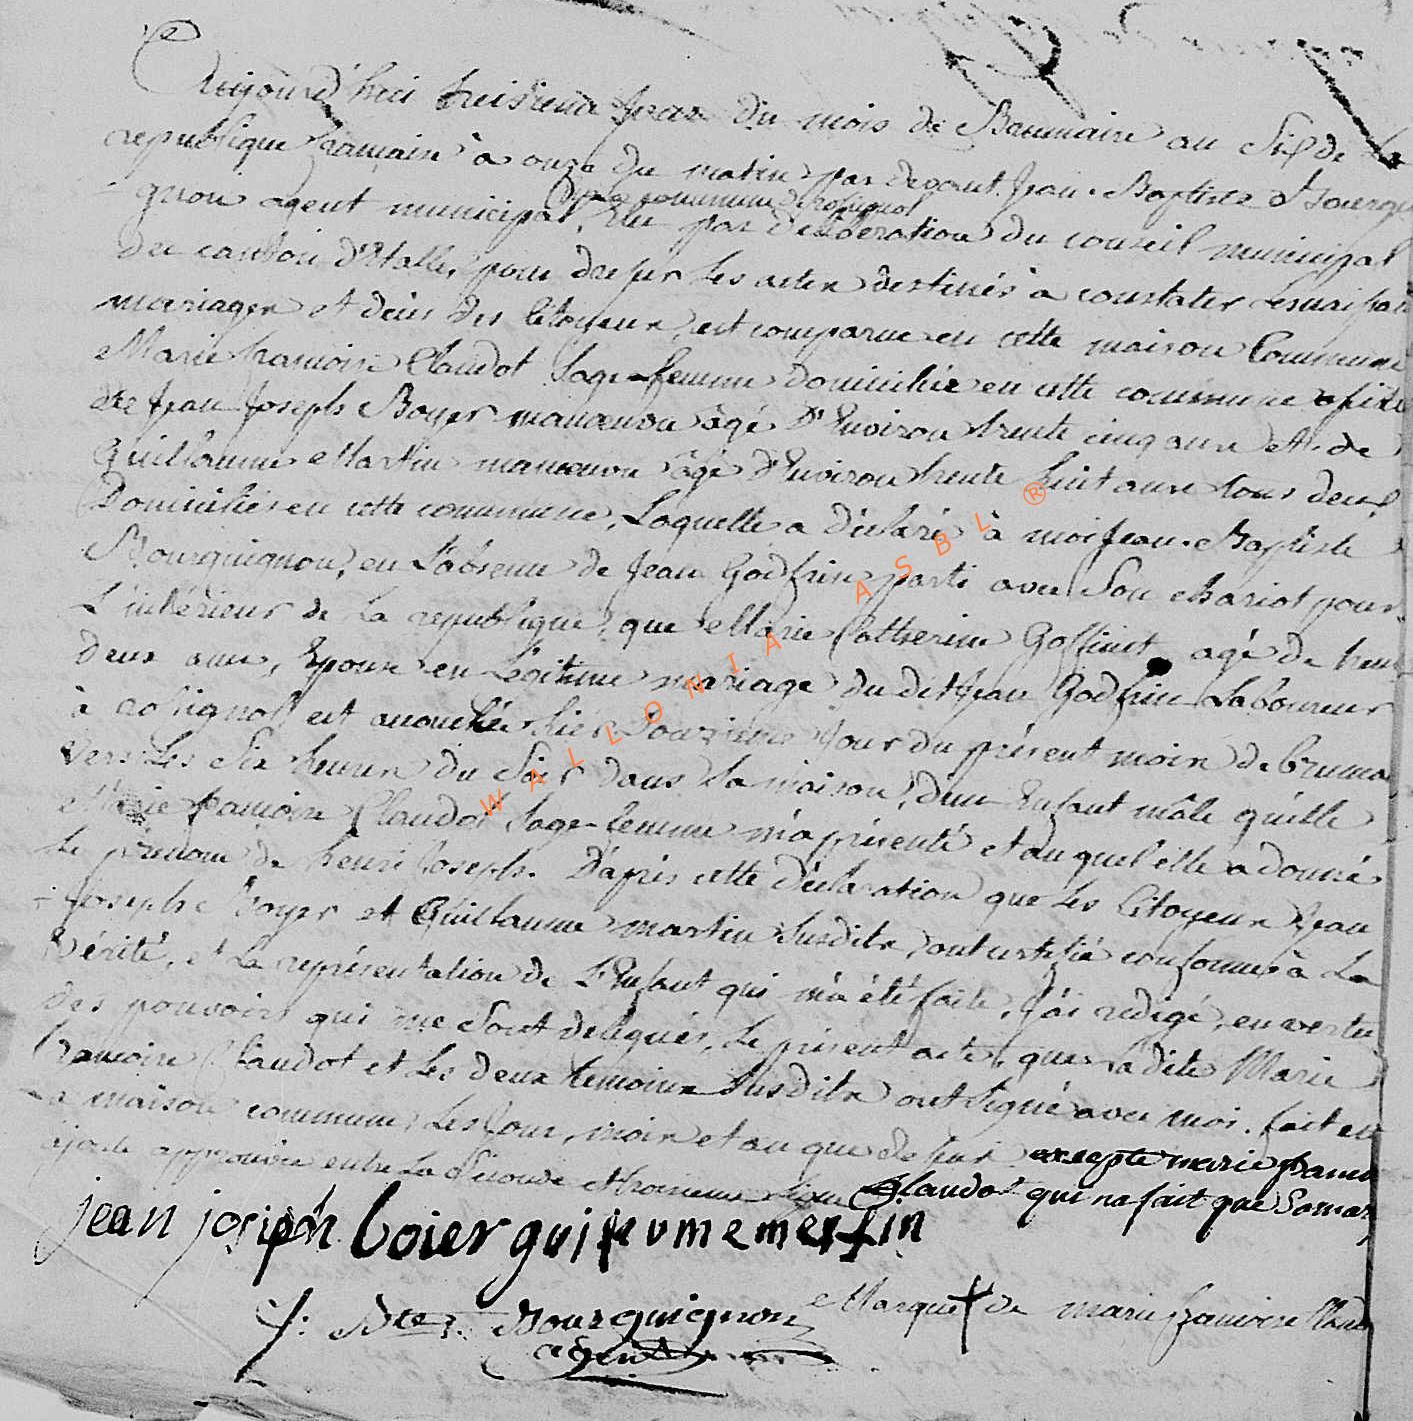 Aujourd'hui treisieme jour du mois de Brumaire au Six de la
republique francaise à onze du matin par devant Jean-Baptiste Bourgui
gnon agent municipal, élu par déliberation du conseil municipal
de la commune de rosignol
du canton d'Etalle, pour dresser les actes destinés à constater les naissan
mariages et décès des Citoyens, est comparue en cette maison Commune
Marie francoise Claudot Sage-femme domiciliée en cette commune assisté
de Jean Joseph Boyer manoeuvre âgé d'Environ trente cinq ans et de
Guillaume Martin manoeuvre âgé d'Environ trente huit ans tous deux
Domiciliés en cette commune, Laquelle a déclaré à moi Jean-Baptiste
Bourguignon, en L'absence de Jean Godfrin parti avec Son chariot pour
L'intérieur de La republique, que Marie Catherine Goffinet agé de trente
deux ans, Epouse en Légitime mariage du dit Jean Godfrin Laboureur
à rosignol est accouchée hier Douzieme Jour du présent mois de bruma
vers Les Six heures du Soir dans Sa maison, d'un Enfant mâle qu'elle
Marie francoise Claudot Sage-femme m'a présenté et au quel elle a donné
Le prénom de henri Joseph. D'après cette déclaration que Les Citoyens Jean
Joseph Boyer et Guillaume martin Susdits, ont certifié conforme à La
Vérité, et La représentation de L'Enfant qui m'a été faite, J'ai redigé, en vertu
des pouvoirs qui me Sont délégués, Le présent acte, que La dite Marie
francoise Claudot et Les deux témoins Susdits ont signé avec moi. fait en
La maison commune, Les Jour, mois et an que dessus excepté marie francoi
ajoute approuvée entre La Séconde et troisieme ligne Claudot qui na fait que Samar
jean joseph boier guillaume mertin
J: Bte: Bourguignon Marque de marie francoise Claudo
agent
WALLONIA ASBL ®